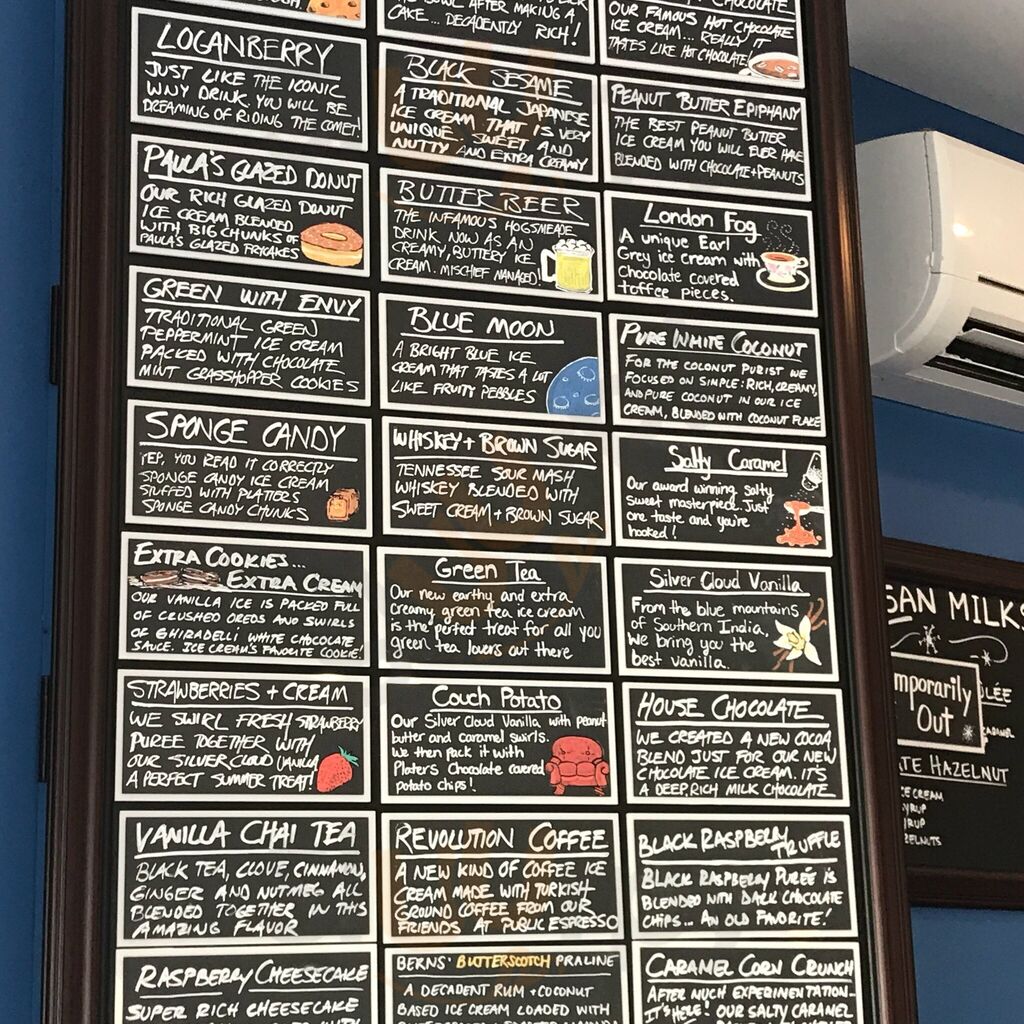 LOGANBERRY
JUST LIKE THE ICONIC
WNY DRINK. YOU WILL BE
DREAMING OF RIDING THE COMET!
PAULA'S GLAZED DONUT
OUR RICH GLAZED DONUT
ICE CREAM BLENDED
WITH BIG CHUNKS OF
PAULA'S GLAZED FRYCAKES
GREEN WITH ENVY
TRADITIONAL GREEN
PEPPERMINT ICE CREAM
PACKED WITH CHOCOLATE
MINT GRASSHOPPER COOKIES
SPONGE CANDY
YEP, YOU READ IT CORRECTLY
SPONGE CANDY ICE CREAM
STUFFED WITH PLATTERS
SPONGE CANDY CHUNKS
EXTRA COOKIES...
EXTRA CREAM
OUR VANILLA ICE IS PACKED FULL
OF CRUSHED OREOS AND SWIRLS
OF GHIRADELLI WHITE CHOCOLATE
SAUCE. ICE CREAM'S FAVORITE COOKIE!
STRAWBERRIES + CREAM
WE SWIRL FRESH STRAWBERRY
PUREE TOGETHER WITH
OUR SILVER CLOUD VANILLA
A PERFECT SUMMER TREAT!
VANILLA CHAI TEA
BLACK TEA, CLOVE, CINNAMON,
GINGER AND NUTMEG ALL
BLENDED TOGETHER IN THIS
AMAZING FLAVOR
RASPBERRY CHEESECAKE
SUPER RICH CHEESECAKE
AFTER MAKING A
CAKE... DECADENTLY RICH!
BLACK SESAME
A TRADITIONAL JAPANESE
ICE CREAM THAT IS VERY
UNIQUE. SWEET AND
NUTTY AND EXTRA CREAMY
BUTTER BEER
THE INFAMOUS HOGSMEADE
DRINK, NOW AS AN
CREAMY, BUTTERY ICE
CREAM. MISCHIEF MANAGED!
BLUE MOON
A BRIGHT BLUE ICE
CREAM THAT TASTES A LOT
LIKE FRUITY PEBBLES
WHISKEY + BROWN SUGAR
TENNESSEE SOUR MASH
WHISKEY BLENDED WITH
SWEET CREAM + BROWN SUGAR
Green Tea
Our new earthy and extra
creamy green tea ice cream
is the perfect treat for all you
green tea lovers out there
Couch Potato
Our Silver Cloud Vanilla with peanut
butter and caramel swirls.
We then pack it with
Platers Chocolate covered
potato chips!
REVOLUTION COFFEE
A NEW KIND OF COFFEE ICE
CREAM MADE WITH TURKISH
GROUND COFFEE FROM OUR
FRIENDS AT PUBLIC ESPRESSO
BERNS' BUTTERSCOTCH PRALINE
A DECADENT RUM + COCONUT
BASED ICE CREAM LOADED WITH
CHOCOLATE
OUR FAMOUS HOT CHOCOLATE
ICE CREAM... REALLY IT
TASTES LIKE HOT CHOCOLATE!
PEANUT BUTTER EPIPHANY
THE BEST PEANUT BUTTER
ICE CREAM YOU WILL EVER HAVE
BLENDED WITH CHOCOLATE + PEANUTS
London Fog
A unique Earl
Grey ice cream with
Chocolate covered
toffee pieces.
PURE WHITE COCONUT
FOR THE COCONUT PURIST WE
FOCUSED ON SIMPLE: RICH, CREAMY,
AND PURE COCONUT IN OUR ICE
CREAM, BLENDED WITH COCONUT FLAKE
Salty Caramel
Our award winning salty
sweet masterpiece. Just
one taste and you're
hooked!
Silver Cloud Vanilla
From the blue mountains
of Southern India,
We bring you the
best vanilla.
HOUSE CHOCOLATE
WE CREATED A NEW COCOA
BLEND JUST FOR OUR NEW
CHOCOLATE ICE CREAM. IT'S
A DEEP, RICH MILK CHOCOLATE
BLACK RASPBERRY TRUFFLE
BLACK RASPBERRY PURÉE IS
BLENDED WITH DARK CHOCOLATE
CHIPS... AN OLD FAVORITE!
CARAMEL CORN CRUNCH
AFTER MUCH EXPERIMENTATION-
IT'S HERE! OUR SALTY CARAMEL
SAN MILKS
mporarily
Out
LÉE
CARAMEL
TE HAZELNUT
ICE CREAM
YRUP
YRUP
ZELNUTS